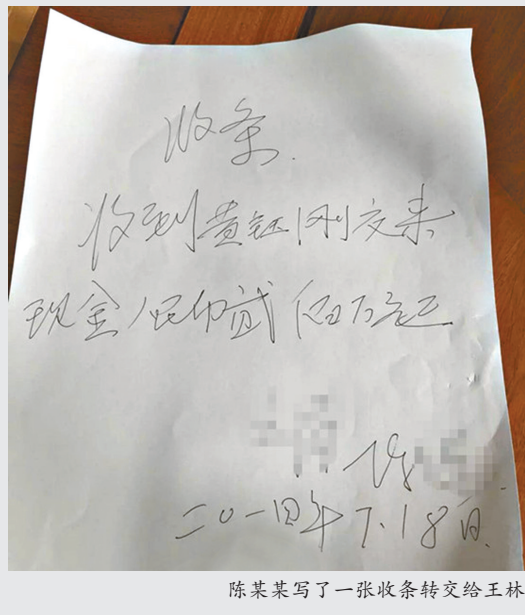 收条.
收到黄钰刚交来
现金人民币贰佰万元
二〇一四年7.18日.
陈某某写了一张收条转交给王林